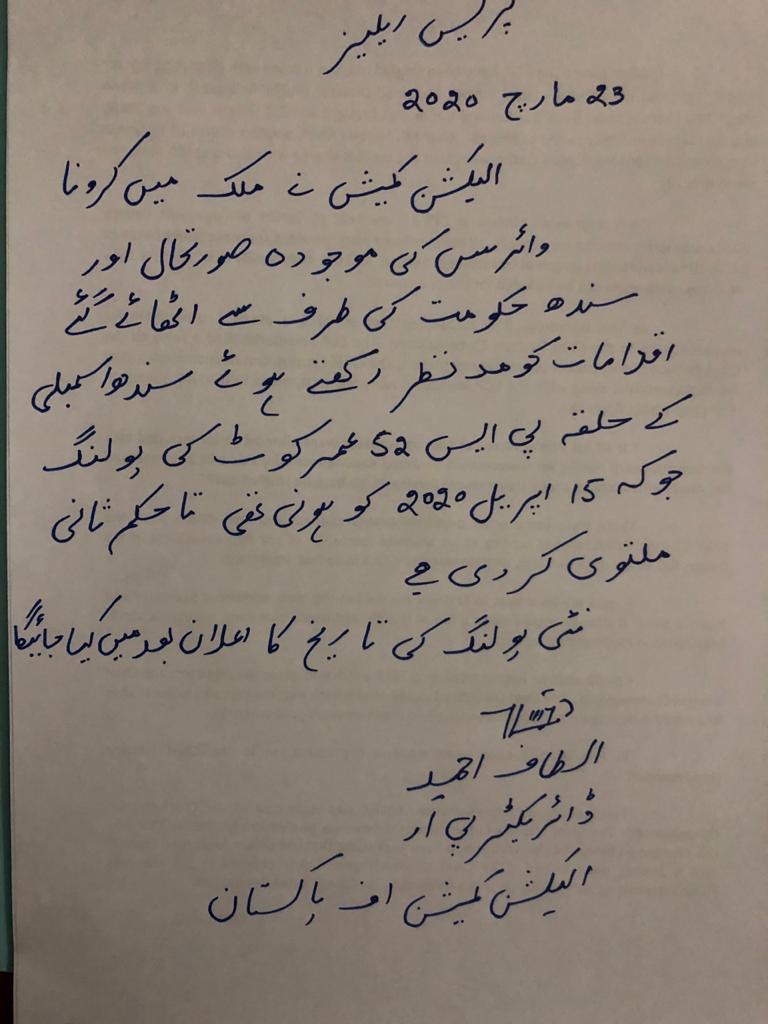 پریس ریلیز
23 مارچ 2020
الیکشن کمیشن نے ملک میں کرونا
وائرس کی موجودہ صورتحال اور
سندھ حکومت کی طرف سے اٹھائے گئے
اقدامات کو مدنظر رکھتے ہوئے سندھ اسمبلی
کے حلقہ پی ایس 52 عمر کوٹ کی پولنگ
جو کہ 15 اپریل 2020 کو ہونی تھی تا حکم ثانی
ملتوی کر دی ہے
نئی پولنگ کی تاریخ کا اعلان بعد میں کیا جائیگا
الطاف احمد
ڈائریکٹر پی ار
الیکشن کمیشن اف پاکستان